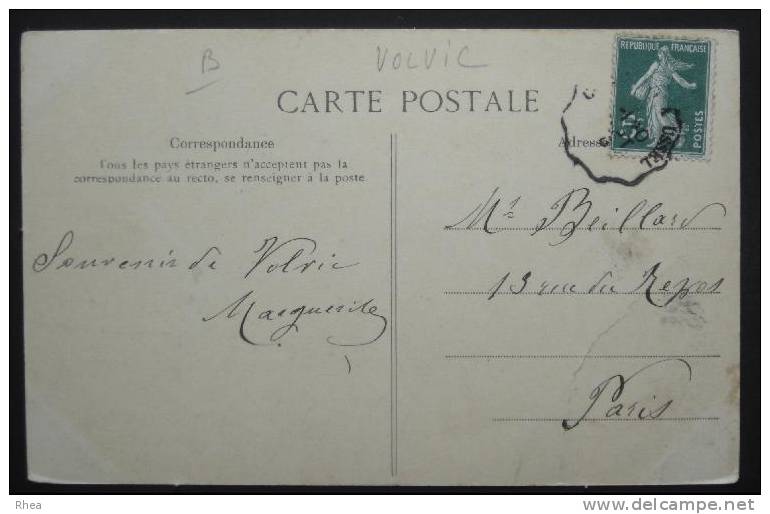 B
VOLVIC
CARTE POSTALE
REPUBLIQUE FRANÇAISE
POSTES
Correspondance
Tous les pays étrangers n'acceptent pas la
correspondance au recto, se renseigner à la poste
Adresse
USSEL
Mr Beillard
13 rue du Repos
Paris
Souvenir de Volvic
Marguerite
Rhea
delcampe.net